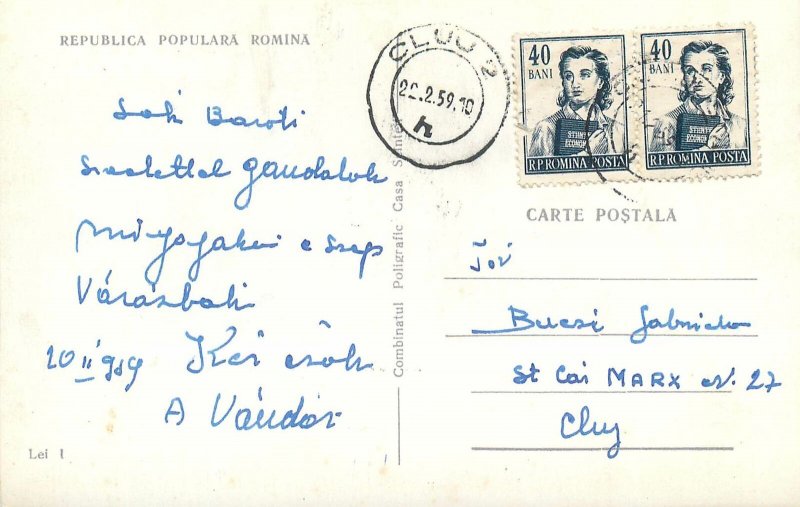 REPUBLICA POPULARĂ ROMINĂ
CLUJ 2
22.2.59.10
h
40
BANI
STIINTE
ECONOM
R.P.ROMINA POSTA
40
BANI
STIINTE
ECONOM
R.P.ROMINA POSTA
Sok Baráti
Szeretettel gondolok
a szép
Városból
20 II 959 Kézi csók
A Vándor
Lei 1
Combinatul Poligrafic Casa Scînteii
CARTE POȘTALĂ
Tov
Bucsi
St Car MARX N. 27
Cluj